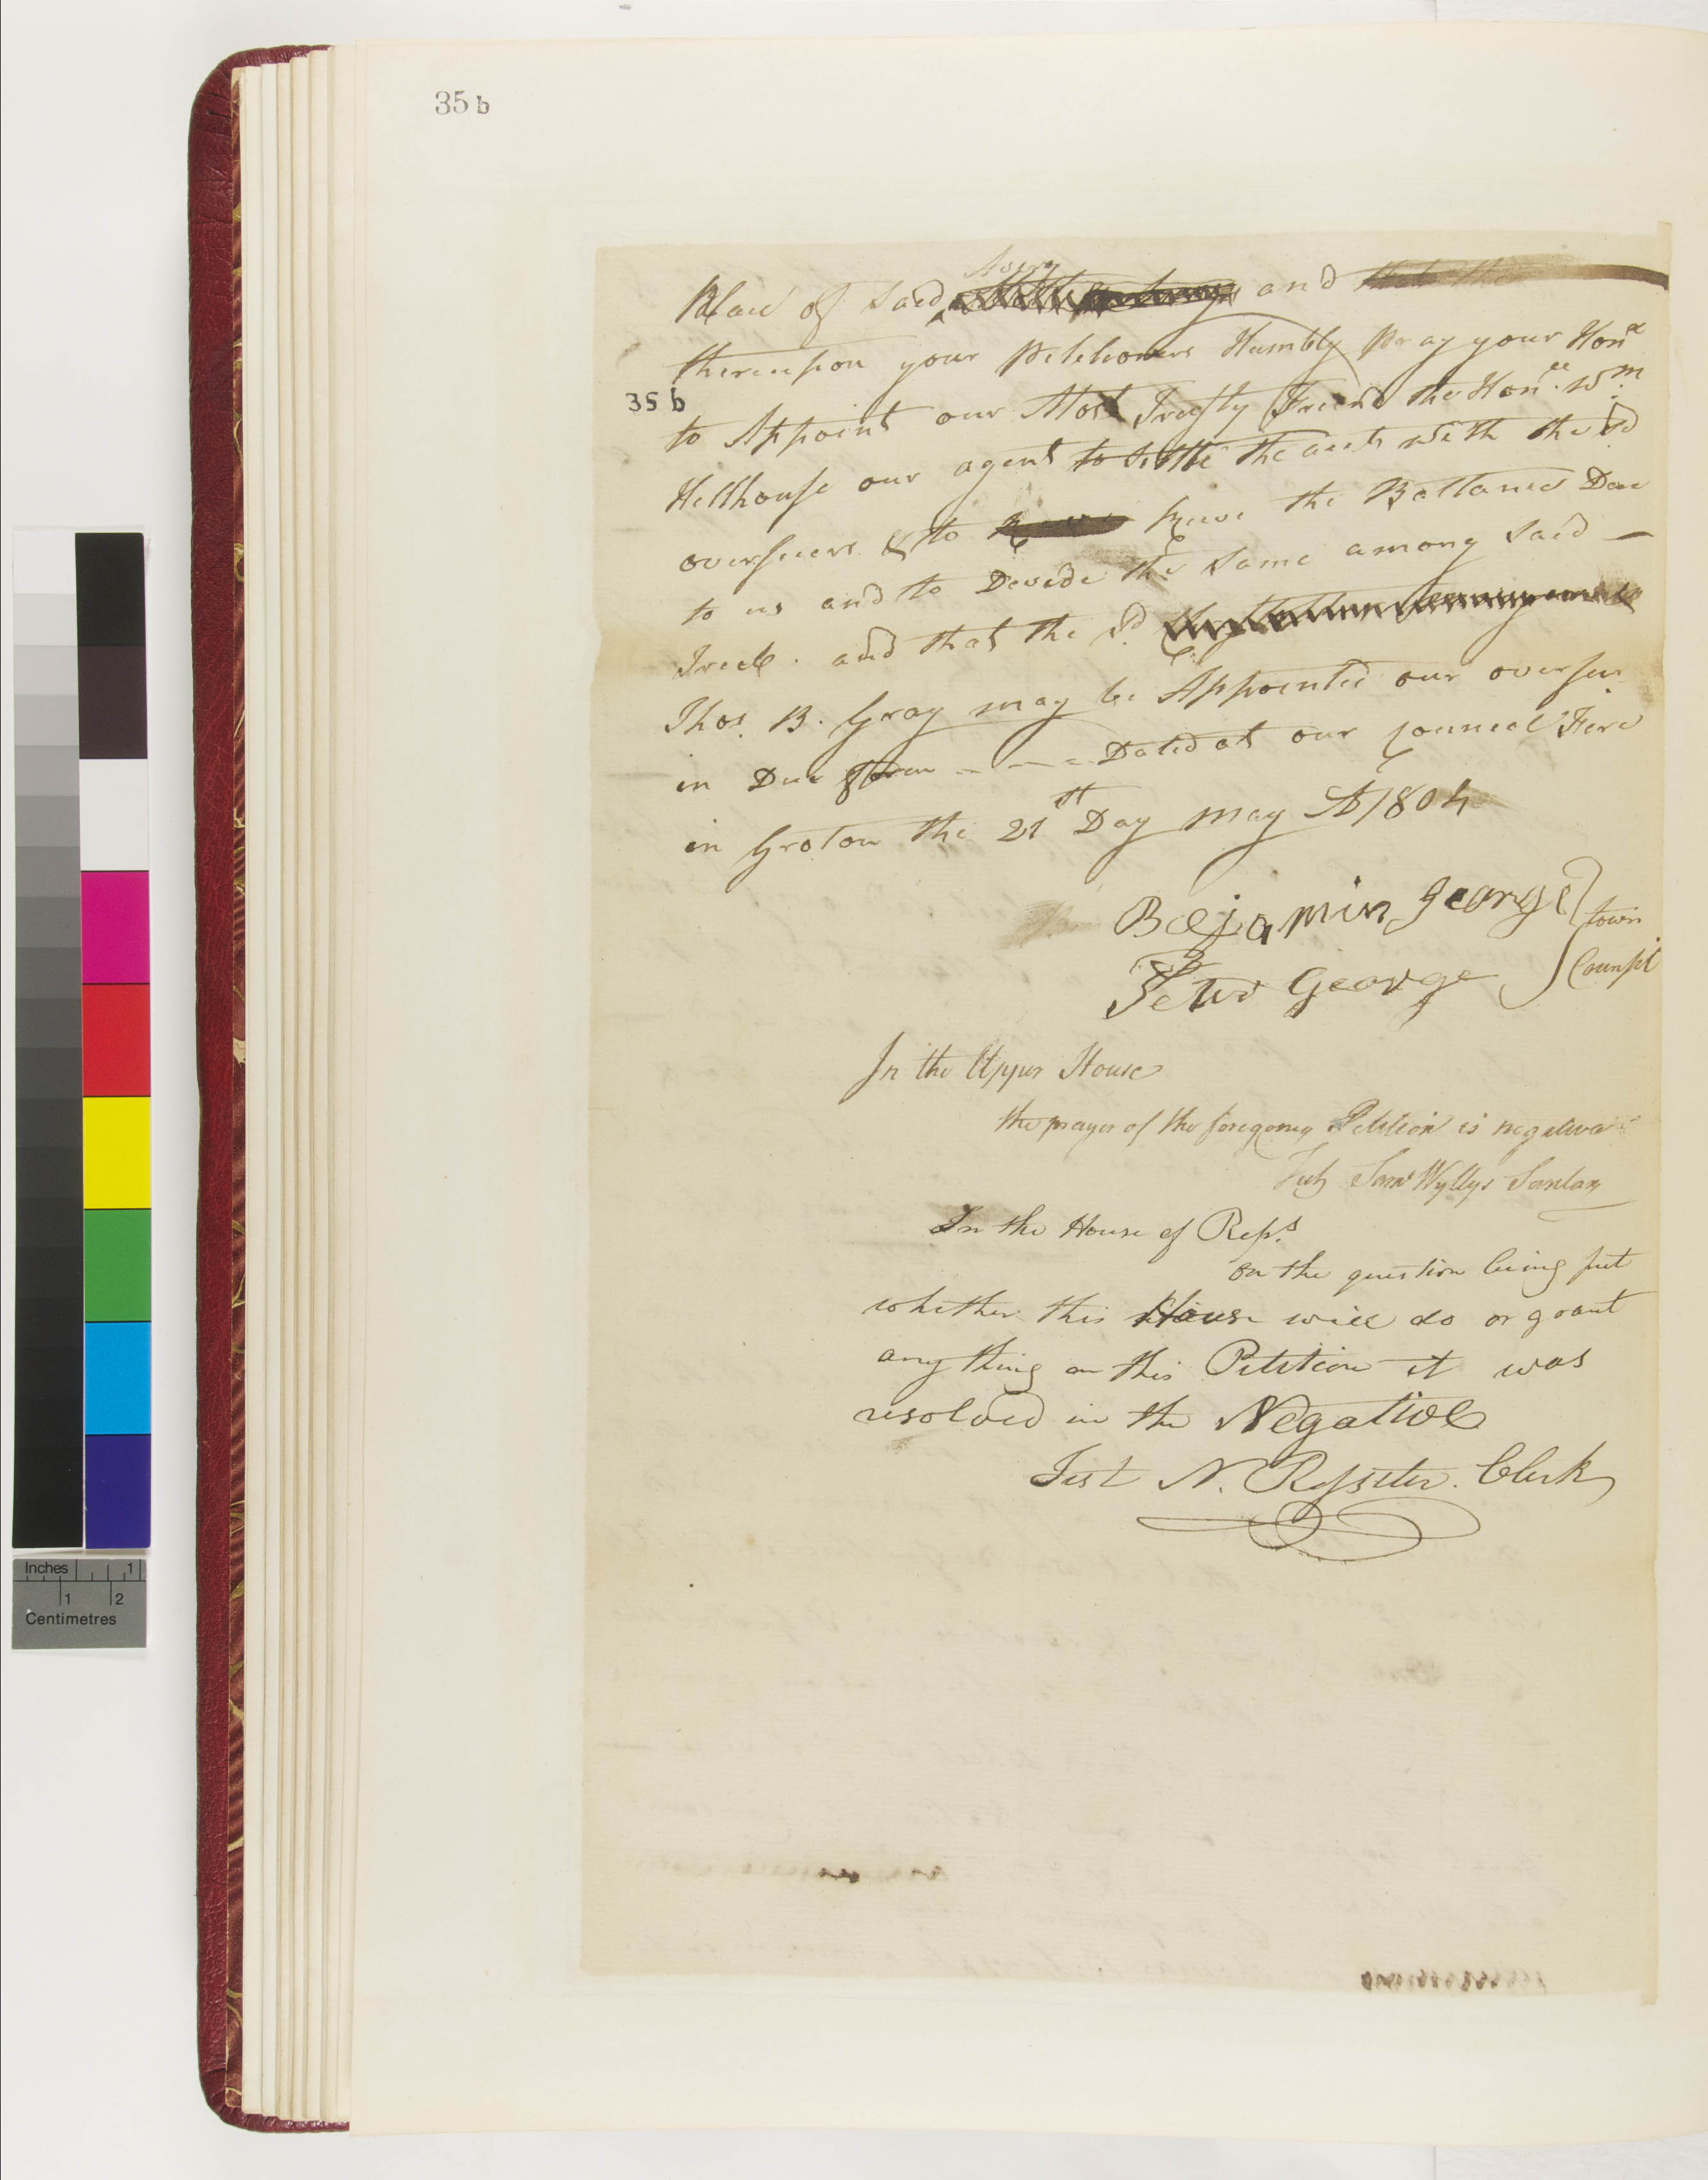 35 b
Place of said Avery and that the
thereupon your petitioners Humbly pray your Hon.rs
35 b
to Appoint our Most Trusty Friend the Hon.le Wm
Hillhouse our agent to settle the accts with the sd
overseers & to Receive the Ballance Due
to us and to Devide the same among said —
Tribe. and that the sd
Thos. B. Gray may be Appointed our overseer
in Due form - - - Dated at our Councel Fire
in Groton the 21st Day may AD 1804
Bejamin george
town
Peter George
Counsil
In the Upper House
the prayer of the foregoing Petition is negatived
Test Saml Wyllys Secretary
In the House of Reps.
on the question being put
whether this House will do or grant
any thing on this Petition it was
resolved in the Negative
Test N. Rosseter. Clerk
Inches 1
1 2
Centimetres